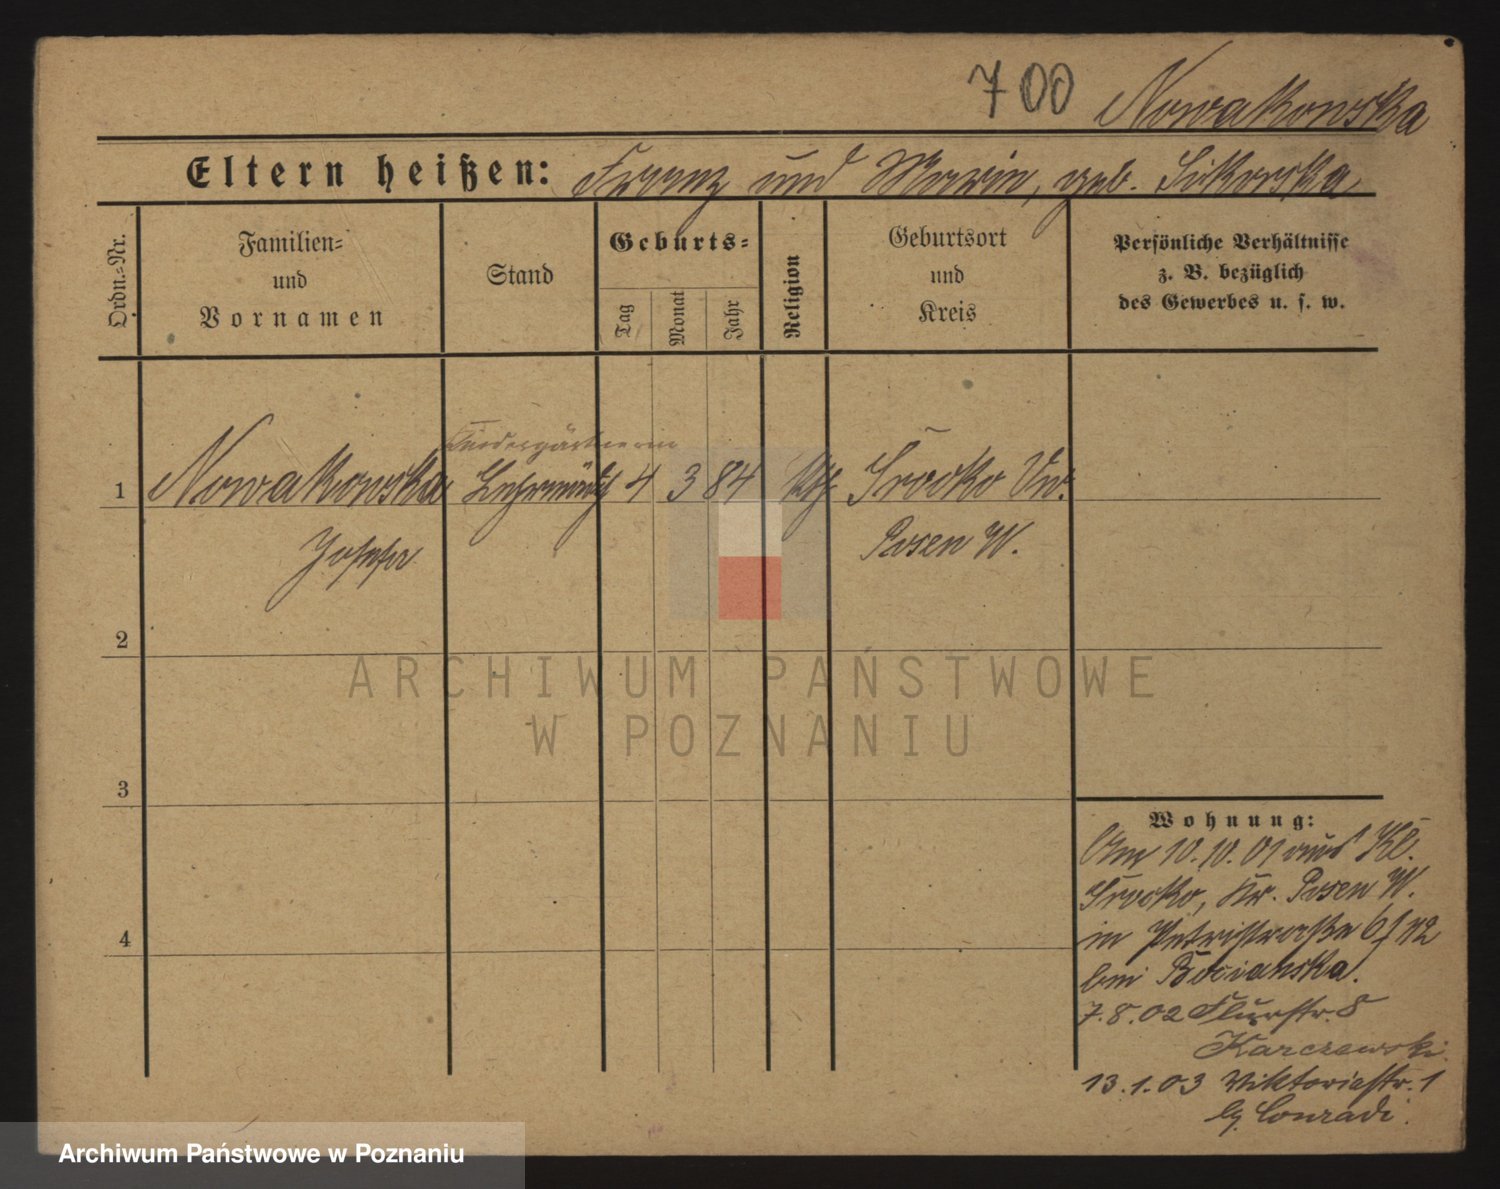 700 Nowakowska
Eltern heißen: Franz und Marie, geb. Sikorska
Ordn.-Nr.
Familien-
und
Vornamen
Stand
Geburts-
Tag
Monat
Jahr
Religion
Geburtsort
und
Kreis
Persönliche Verhältnisse
z. B. bezüglich
des Gewerbes u. s. w.
Kindergärtnerin
1 Nowakowska 4 3 84 kth Srocko
Josefa Posen W.
2
3
4
ARCHIWUM PAŃSTWOWE
W POZNANIU
Wohnung:
Am 10.10.01 aus Kl.
Srocko, Kr. Posen W.
in Petristraße
bei Bocianska.
7.8.02 Flurstr. 8
Karczewski.
13.1.03 Viktoriastr. 1
b. Conradi.
Archiwum Państwowe w Poznaniu